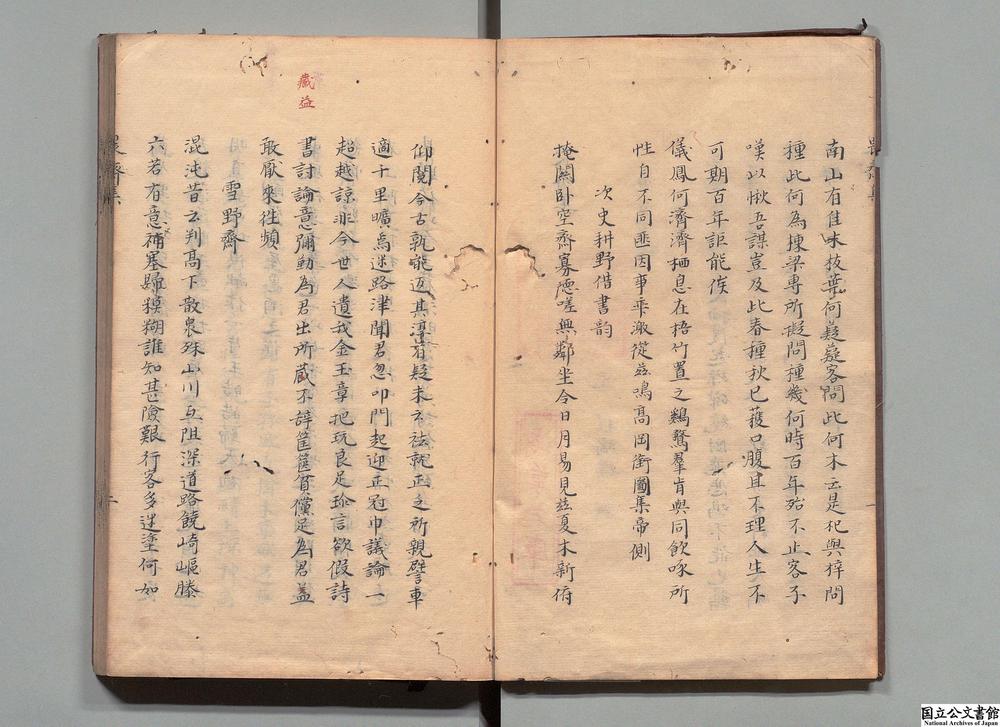 南山有佳味枝葉何蕤蕤客問此何木云是杞與梓問
種此何為棟梁專所擬問種幾何時百年殆不止客子
嘆以愀吾謀豈及此春種秋已穫口腹且不理人生不
可期百年詎能俟
儀鳳何濟濟栖息在梧竹置之鷄鶩羣肯與同飲啄所
性自不同匪因事乖激從茲鳴高岡銜圖集帝側
次史耕野借書韵
掩關卧空齋寡德嗟無鄰坐今日月易見茲夏木新俯
仰閱今古孰能迈其淳有疑未云祛就正乏所親譬車
適十里曠焉迷路津聞君忽叩門起迎正冠巾議論一
超越諒非今世人遺我金玉章把玩良足珎言欲假詩
書討論意彌勤為君出所蔵不辞筐篋貧儻足為君益
敢厭來往頻
雪野齋
混沌昔云判高下散泉殊山川互阻深道路饒崎嶇滕
六若有意補塞歸模糊誰知甚險艱行客多迷塗何如
藏益
齊集
一
国立公文書館
National Archives of Japan